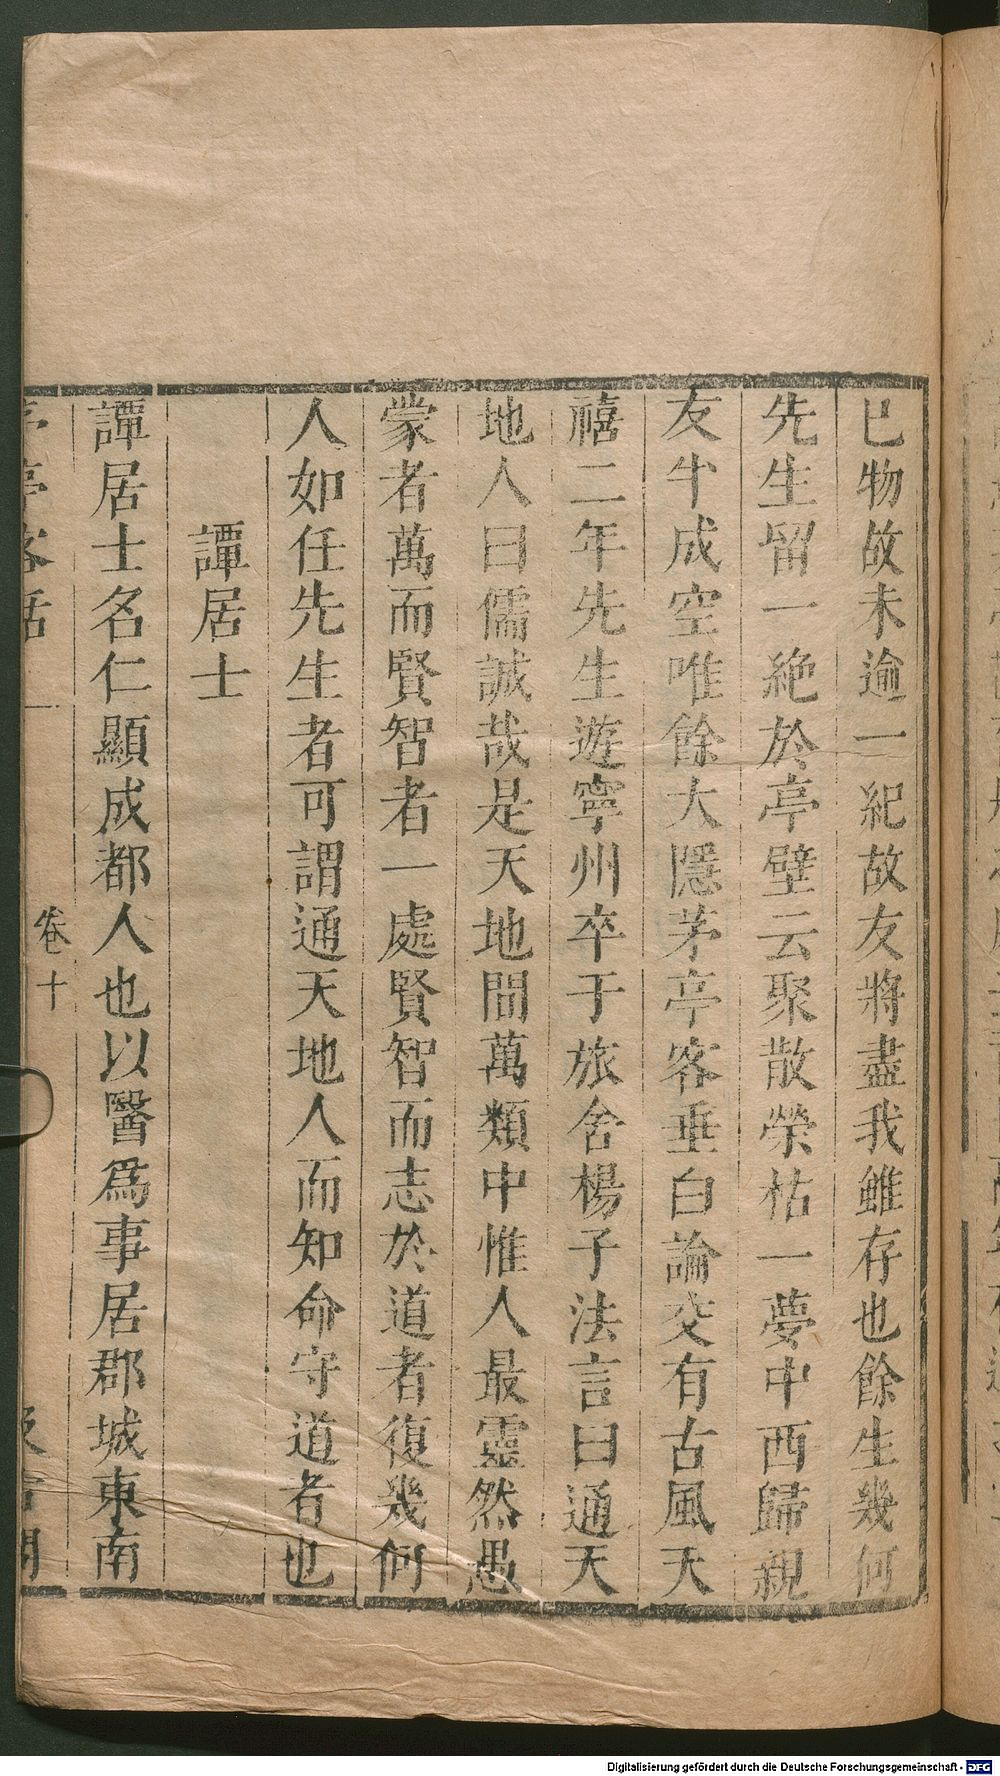 巳物故未逾一紀故友將盡我雖存也餘生幾何
先生留一絶於亭壁云聚散榮枯一夢中西歸親
友半成空唯餘大隱茅亭客垂白論交有古風天
禧二年先生遊寧州卒于旅舍楊子法言曰通天
地人曰儒誠哉是天地間萬類中惟人最靈然愚
蒙者萬而賢智者一處賢智而志於道者復幾何
人如任先生者可謂通天地人而知命守道者也
譚居士
譚居士名仁顯成都人也以醫爲事居郡城東南
卷十
Digitalisierung gefördert durch die Deutsche Forschungsgemeinschaft - DFG